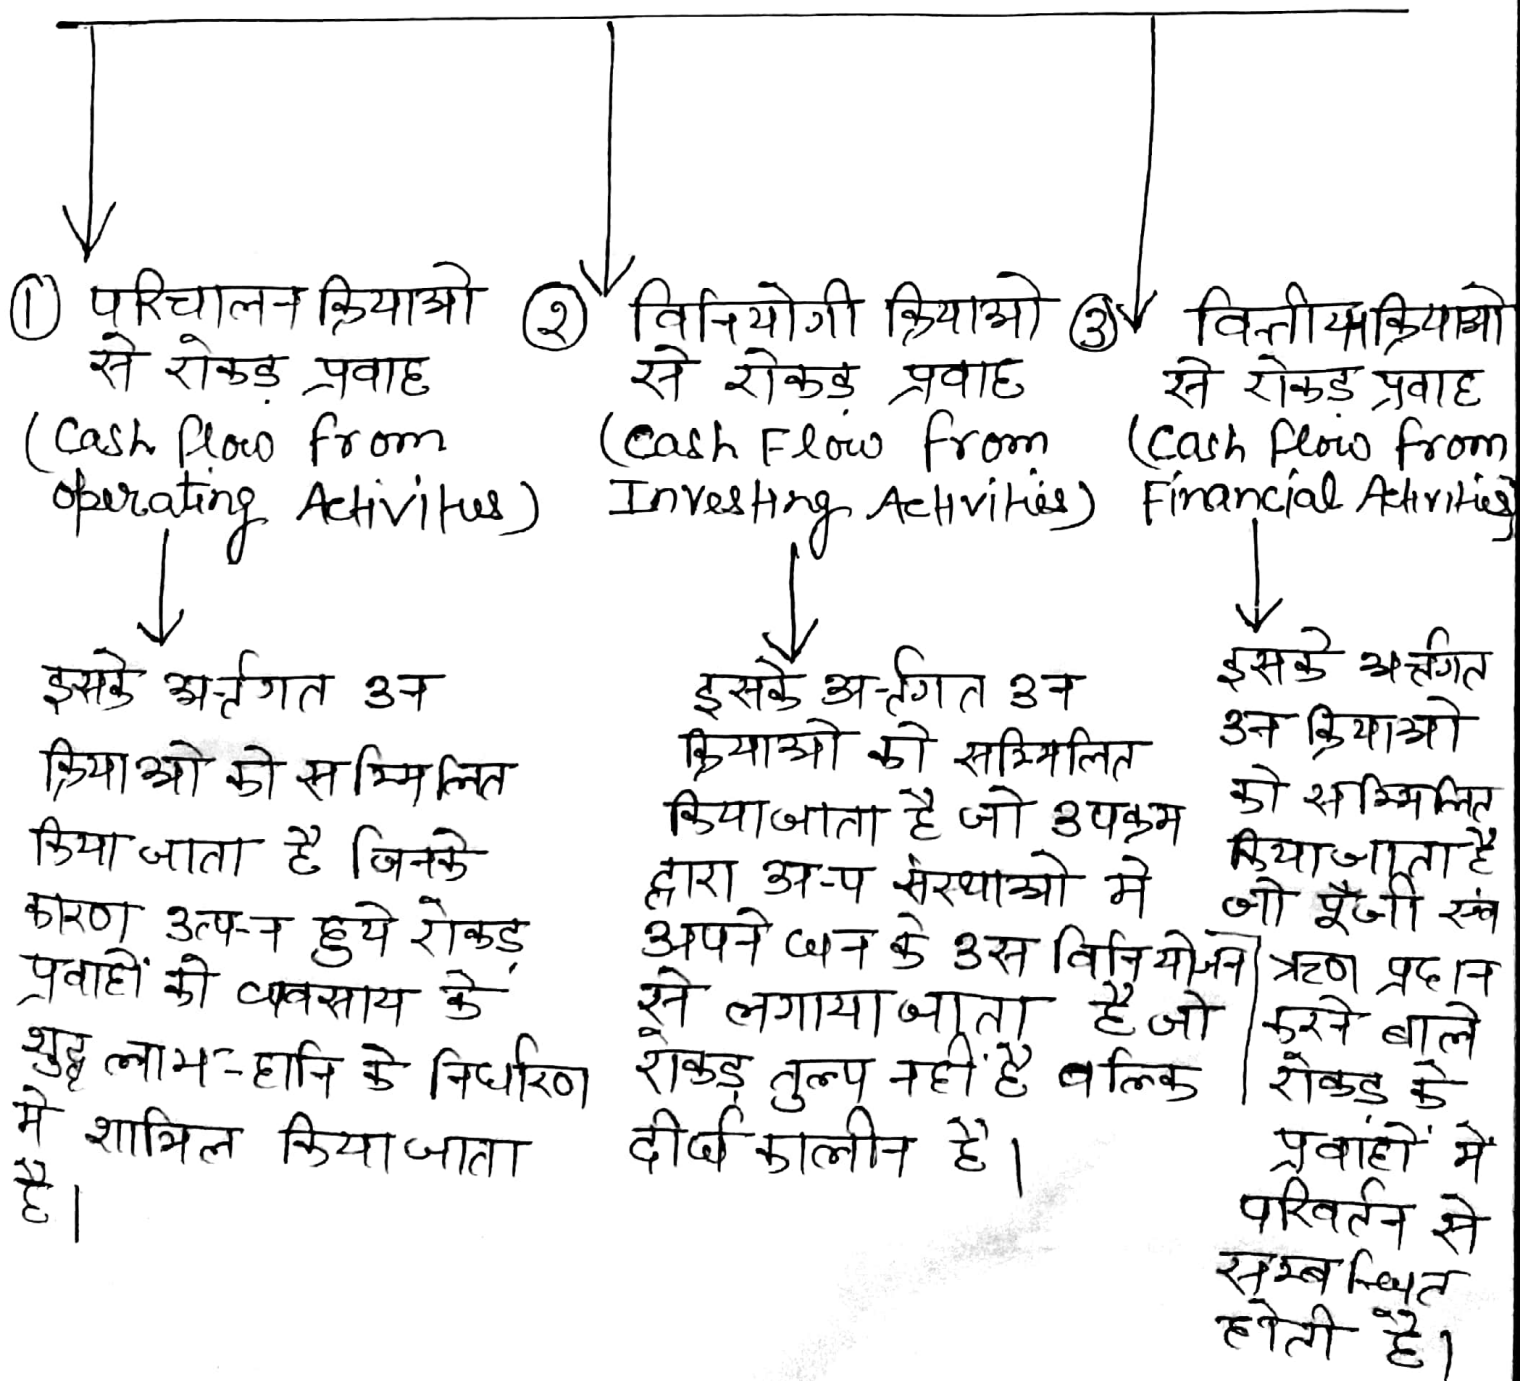 ① परिचालन क्रियाओ
से रोकड़ प्रवाह
(Cash flow from
operating Activities)
इसके अर्न्तगत उन
क्रियाओ को सम्मिलित
किया जाता है जिनके
कारण उत्पन्न हुये रोकड़
प्रवाहों को व्यवसाय के
शुद्ध लाभ-हानि के निर्धारण
मे शामिल किया जाता
है।
② विनियोगी क्रियाओ
से रोकड़ प्रवाह
(Cash Flow from
Investing Activities)
इसके अर्न्तगत उन
क्रियाओ को सम्मिलित
किया जाता है जो उपक्रम
द्वारा अन्य संस्थाओ मे
अपने धन के उस विनियोजन
से लगाया जाता है जो
रोकड़ तुल्य नहीं है बल्कि
दीर्घ कालीन है।
③ वित्तीय क्रियाओ
से रोकड़ प्रवाह
(Cash flow from
Financial Activities)
इसके अर्न्तगत
उन क्रियाओ
को सम्मिलित
किया जाता है
जो पूँजी एवं
ऋण प्रदान
करने बाले
रोकड़ के
प्रवाहों में
परिवर्तन से
सम्बन्धित
होती है।